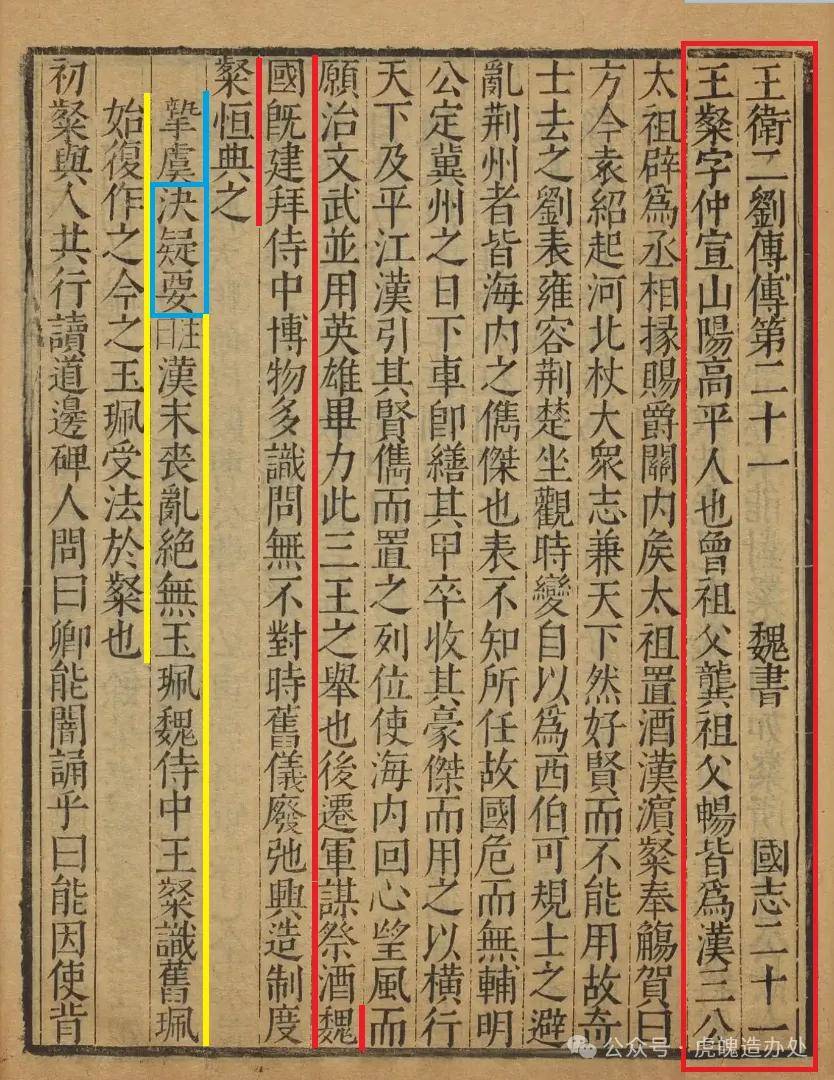 王衛二劉傅傳第二十一 魏書 國志二十一
王粲字仲宣山陽高平人也曾祖父龔祖父暢皆爲漢三公
太祖辟爲丞相掾賜爵關内矦太祖置酒漢濵粲奉觴賀曰
方今袁紹起河北杖大衆志兼天下然好賢而不能用故奇
士去之劉表雍容荆楚坐觀時變自以爲西伯可規士之避
亂荆州者皆海内之儁傑也表不知所任故國危而無輔明
公定冀州之日下車卽繕其甲卒收其豪傑而用之以橫行
天下及平江漢引其賢儁而置之列位使海内回心望風而
願治文武並用英雄畢力此三王之舉也後遷軍謀祭酒魏
國旣建拜侍中博物多識問無不對時舊儀廢弛興造制度
粲恒典之
摯虞決疑要註曰漢末喪亂絶無玉珮魏侍中王粲識舊珮
始復作之今之玉珮受法於粲也
初粲與人共行讀道邊碑人問曰卿能闇誦乎曰能因使背
公众号·虎魄造办处